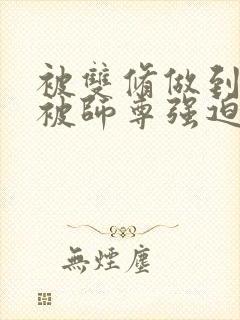 被雙脩做到
被師尊强迫
無煙塵